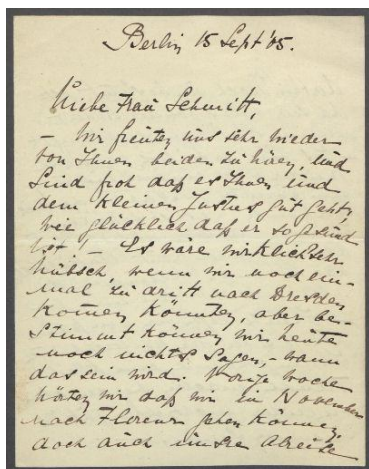 Berlin 15 Sept '05.
Liebe Frau Schmitt,
– Wir freuten uns sehr wieder
von Ihnen beiden zu hören, und
sind froh daß es Ihnen und
dem kleinen Justus gut geht,
wie glücklich daß er so gesund
ist! – Es wäre wirklich sehr
hübsch, wenn wir noch ein-
mal zu dritt nach Dresden
kommen könnten, aber be-
stimmt können wir heute
noch nichts sagen, – wann
das sein wird. Vorige Woche
hörten wir daß wir in November
nach Florenz gehen können,
doch auch unsre Abreise